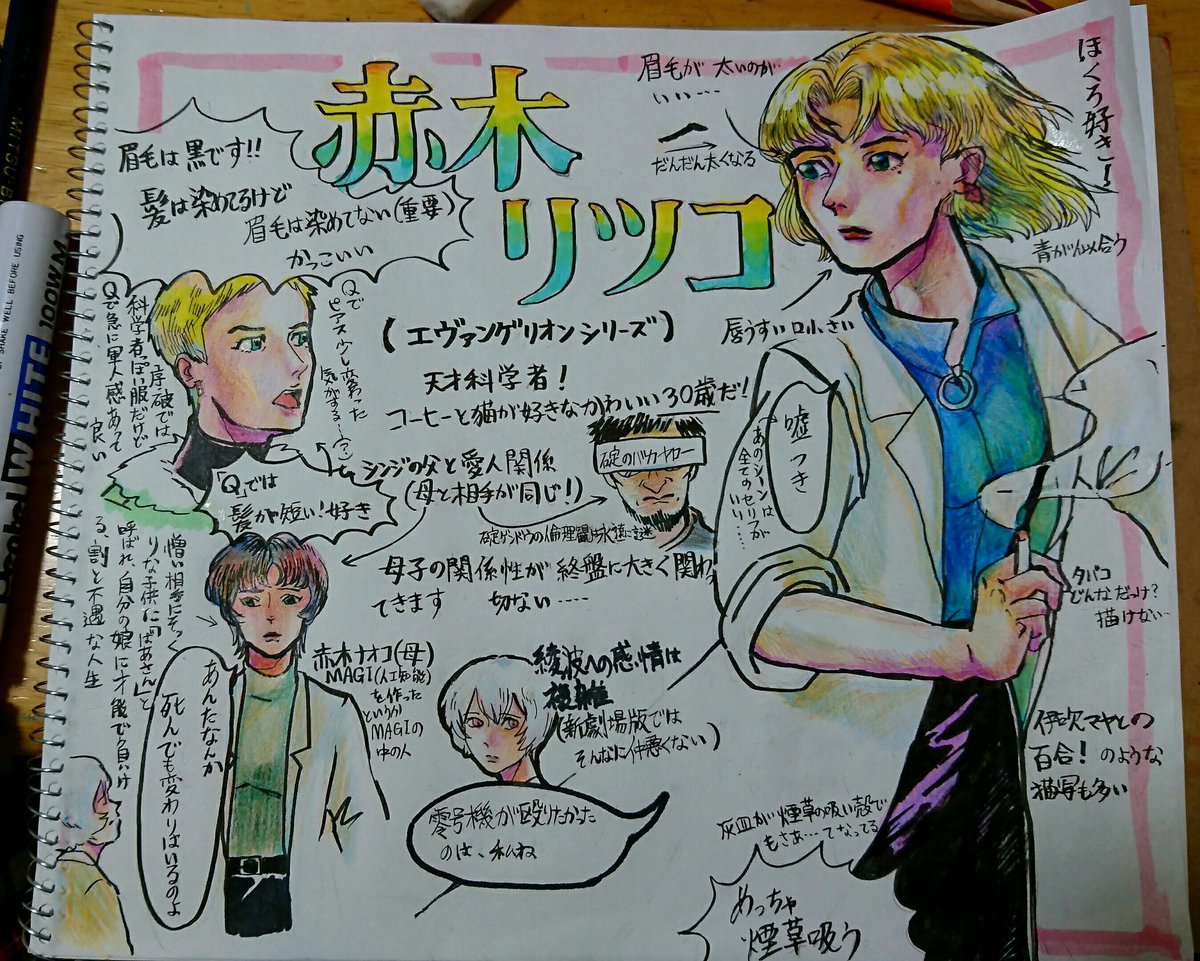 赤木
リツコ
(エヴァンゲリオンシリーズ)
天才科学者!
コーヒーと猫が好きなかわいい30歳だ!
眉毛が太いのが
いい…
だんだん太くなる
ほくろ好き!
青が似合う
唇うすい口小さい
眉毛は黒です!!
髪は染めてるけど
眉毛は染めてない(重要)
かっこいい
Qで
ピアス少し変わった
気がする〜(?)
序破では
科学者っぽい服だけど
Qで急に軍人感あって
良い
「Q」では
髪が短い!好き
シンジの父と愛人関係
(母と相手が同じ!)
碇のバカヤロー
碇ゲンドウの倫理観は永遠に謎
母子の関係性が終盤に大きく関わっ
てきます 切ない….
嘘つき
あのシーンは
全てのセリフが
いい…
タバコ
どんなだっけ?
描けない…
憎い相手にそっく
りな子供に「ばあさん」と
呼ばれ、自分の娘に才能で負け
る、割と不遇な人生
あんたなんか
死んでも変わりはいるのよ
赤木ナオコ(母)
MAGI(人工知能)
を作った
というか
MAGIの
中の人
綾波への感情は
複雑
(新劇場版では
そんなに仲悪くない)
零号機が殴りたかった
のは、私ね
伊吹マヤとの
百合!のような
描写も多い
灰皿が煙草の吸い殻で
もさぁ…てなってる
めっちゃ
煙草吸う
SHAKE WELL BEFORE USING
WHITE 100WM